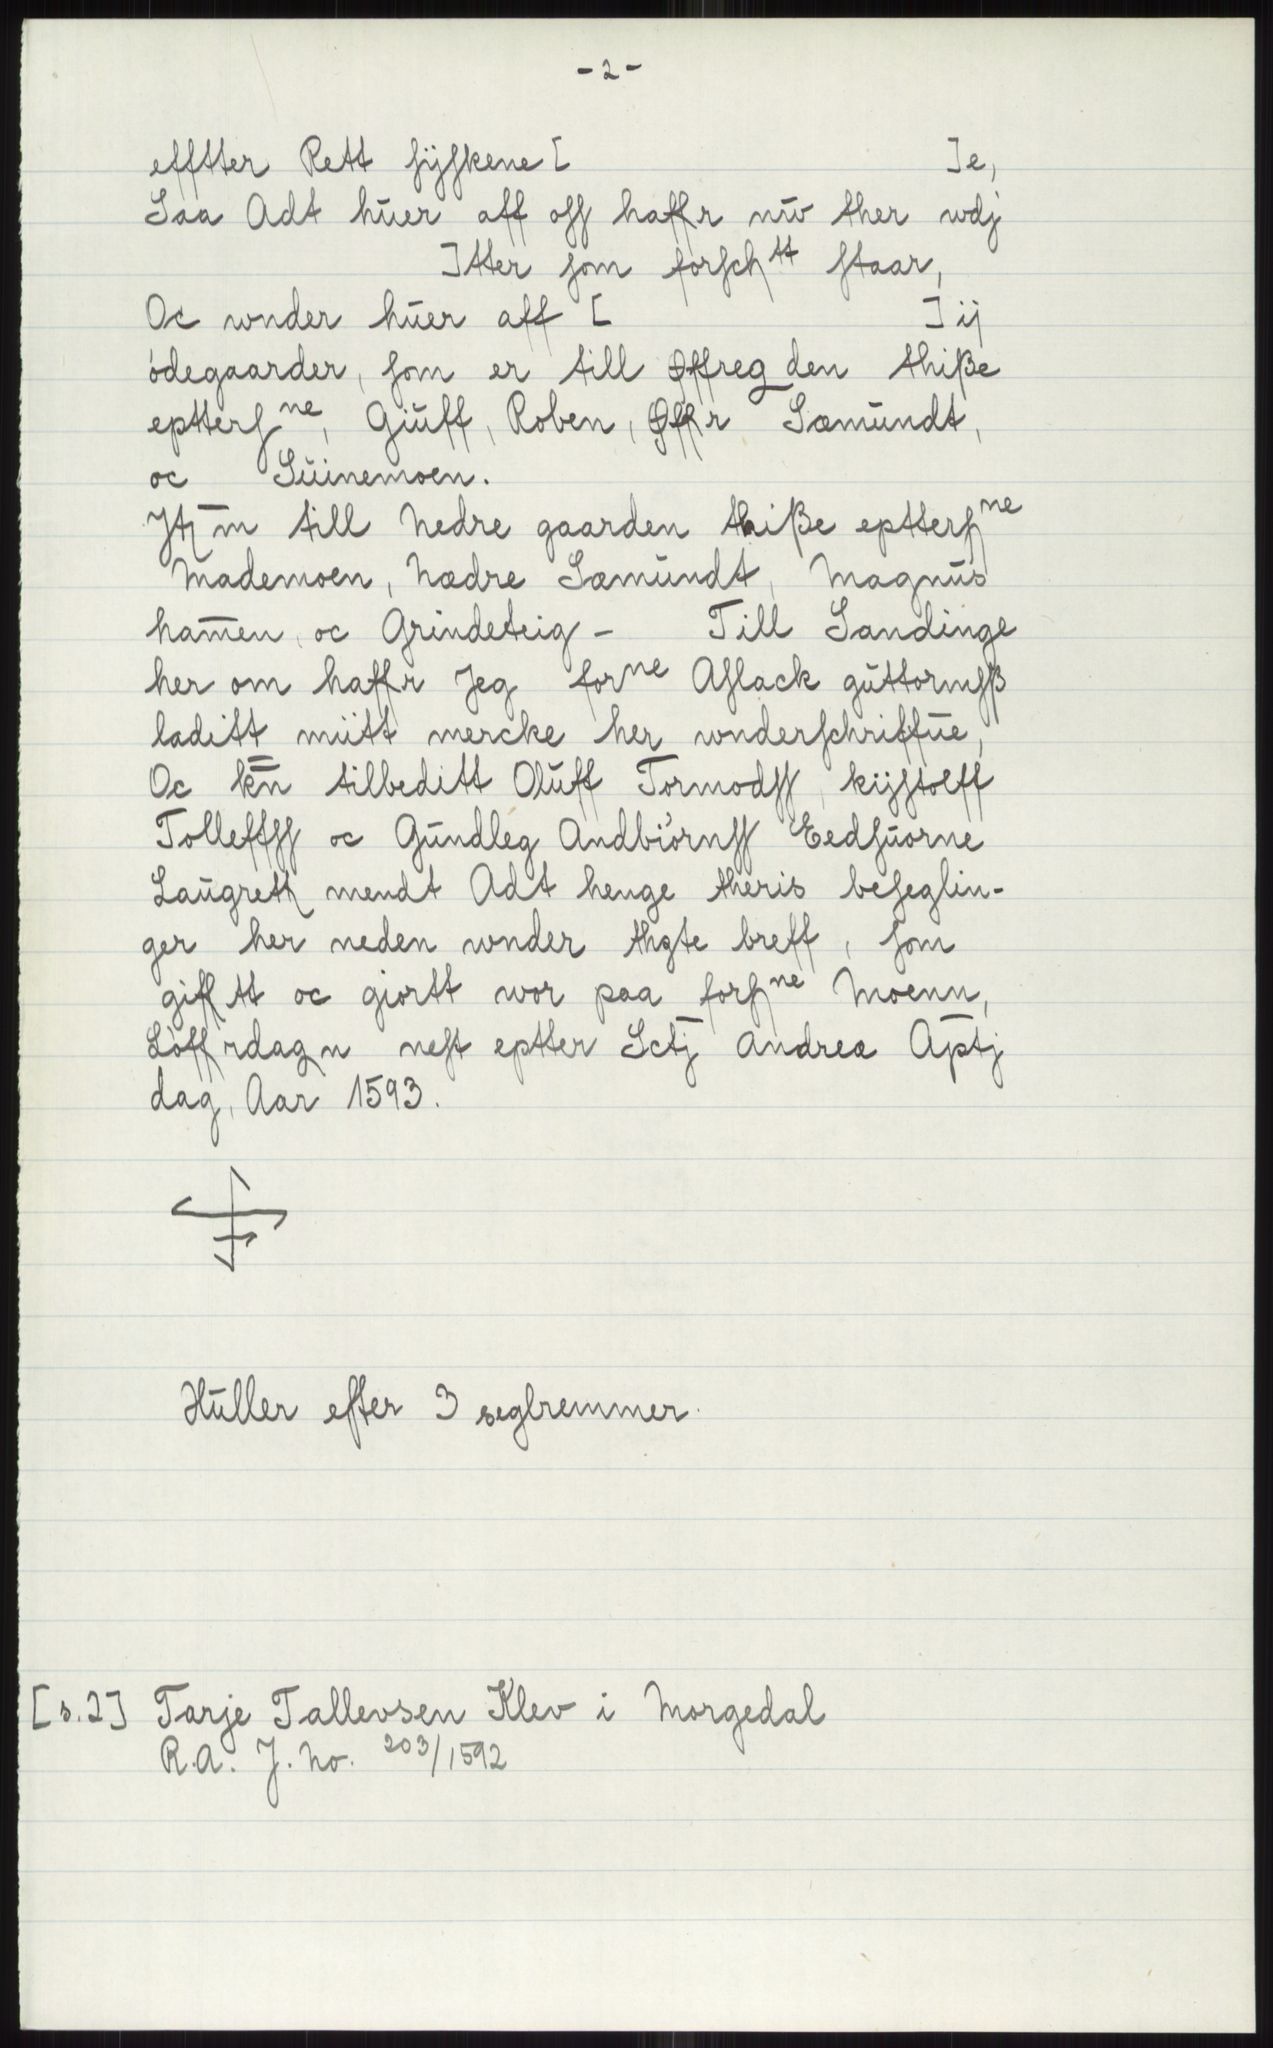 - 2 -
efftter Rett ſÿſkene [ ] e,
Saa Adt hŭer aff oſſ haffr nŭv ther wdj
] tter ſom forſchtt ſtaar,
Oc wnder hŭer aff [ ] ij
ödegaarder, ſom er till Øffreg den thiße
epterſne, Giŭff, Roben, Øffr Sæmŭndt,
oc Sŭinemoen.
Jtm̄ till Nedre gaarden thiße eptterſne
Mademoen, Nædre Sæmŭndt, Magnŭs
ham̄en, oc Grindeteig - Till Sandinge
her om haffr Jeg forne Aſlack gŭttormſß
laditt miitt mercke her wnderſchriffŭe,
Oc kn̄ tilbeditt Olŭff Tormodſſ, kiſſtoeff
Tolleffſſ oc Gŭndleg Andbiörnſſ Eedſŭorne
Laŭgrett mendt Adt henge theris beſeglin-
ger her neden wnder thette breff, ſom
gifftt oc giortt wor paa forſne Moenn,
Löffrdagn neſt eptter Sctj Andreæ Aptj
dag, Aar 1593.
Hŭller efter 3 seglremmer.
[s.2] Tarje Tallevsen Klev i Morgedal
R.A. J. No. 203/1592